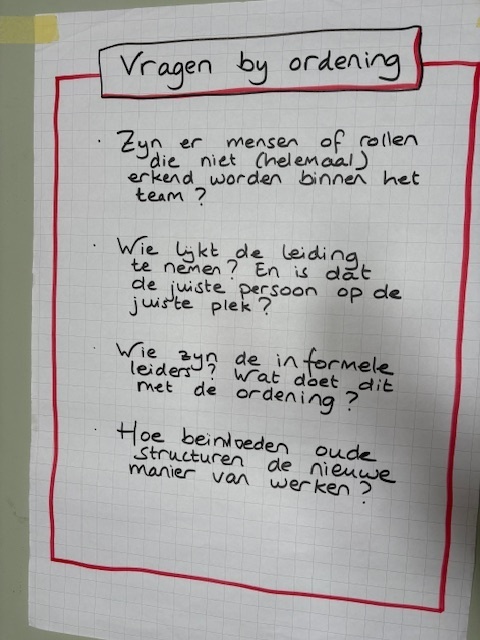 Vragen by ordening
· Zyn er mensen of rollen
die niet (helemaal)
erkend worden binnen het
team?
· Wie lijkt de leiding
te nemen? En is dat
de juiste persoon op de
juiste plek?
· Wie zyn de informele
leiders? Wat doet dit
met de ordening?
· Hoe beinvloeden oude
structuren de nieuwe
manier van werken?